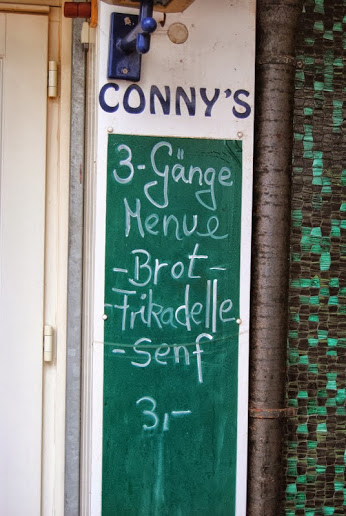 CONNY'S
3-Gänge
Menue
-Brot-
-Frikadelle
-Senf
3,-